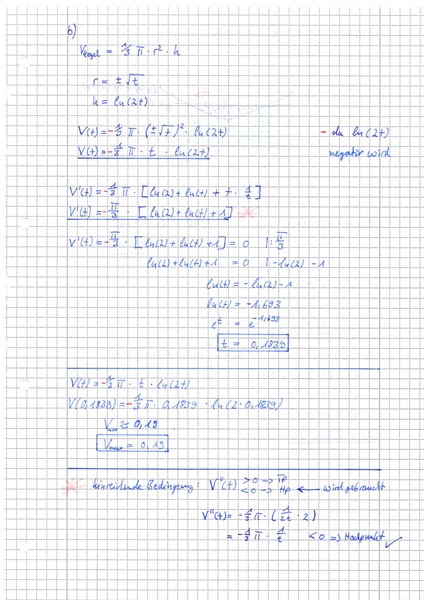 b)
V_Kegel = 1/3 π · r² · h
r = ±√t
h = ln(2t)
V(t) = -1/3 π · (±√t)² · ln(2t) - da ln(2t)
V(t) = -1/3 π · t · ln(2t) negativ wird
V'(t) = -1/3 π · [ln(2) + ln(t) + t · 1/t]
V'(t) = -π/3 · [ln(2) + ln(t) + 1] *
V'(t) = -π/3 · [ln(2) + ln(t) + 1] = 0 | : π/3
ln(2) + ln(t) + 1 = 0 | - ln(2) - 1
ln(t) = - ln(2) - 1
ln(t) = -1,693
e^t = e^-1,693
t = 0,1839
V(t) = -1/3 π · t · ln(2t)
V(0,1839) = -1/3 π · 0,1839 · ln(2 · 0,1839)
V_max ≈ 0,19
V_max = 0,19
* hinreichende Bedingung: V''(t) > 0 → TP
< 0 → HP ← wird gebraucht
V''(t) = -1/3 π · (1/2t · 2)
= -1/3 π · 1/t < 0 ⇒ Hochpunkt ✓